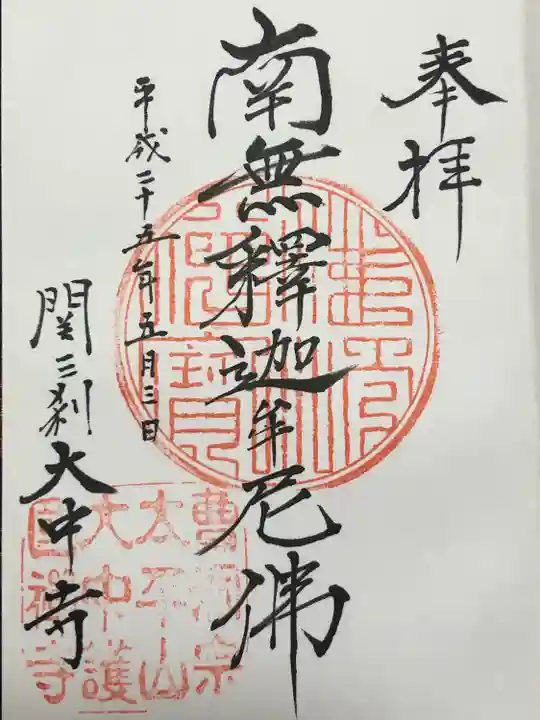 奉拝
南無釋迦牟尼佛
平成二十五年五月三日
関三刹大中寺
曹洞宗
太平山
大中護
国禅寺